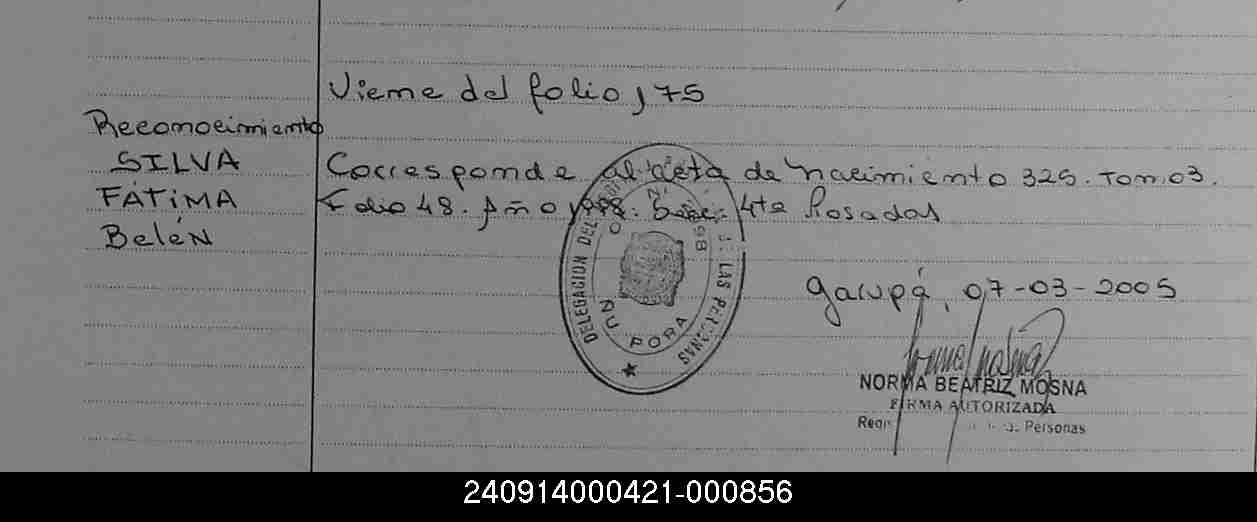 Viene del folio 175
Reconocimiento
SILVA
FÁTIMA
Belén
Corresponde al acta de nacimiento 325. Tom. 03.
Folio 48. Año 1998. Secc. 4ta Posadas
Garupá, 07-03-2005
DELEGACION DEL LAS PERSONAS
ÑU PORA
NORMA BEATRIZ MOSNA
FIRMA AUTORIZADA
Personas
240914000421-000856